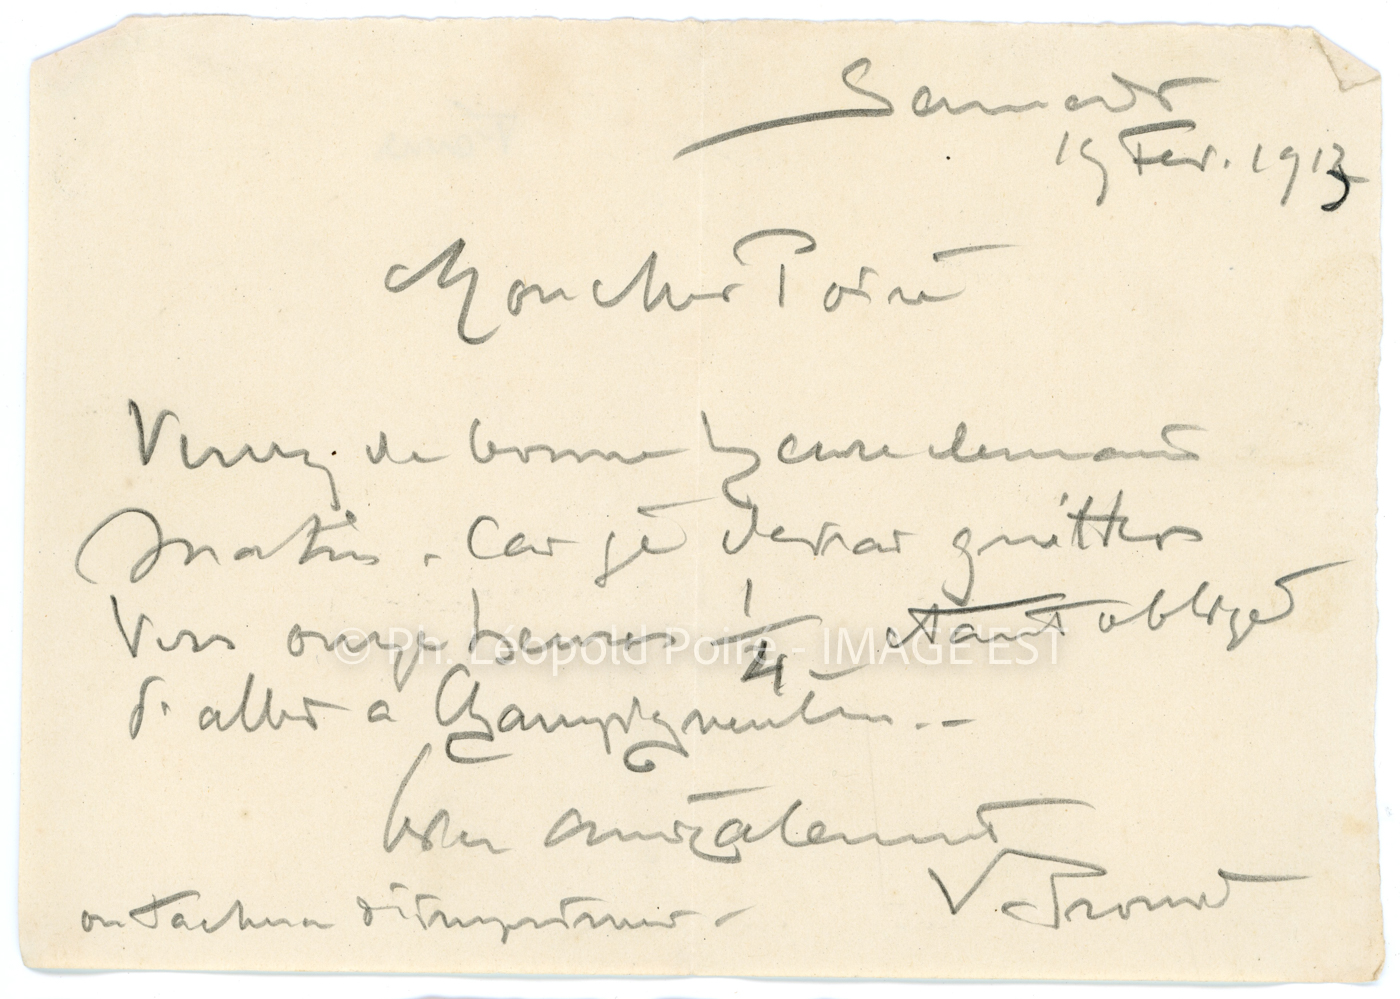 Samedi
15 Fev. 1913
Mon cher Poiré
Venez de bonne heure demain
matin. Car je devrai quitter
Vers onze heures 1/4 étant obligé
© Ph. Léopold Poiré - IMAGE EST
d'aller a Champigneulles. -
bien amicalement
V. Prouvé
on tachera d'imprimer -